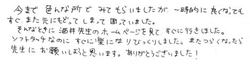 今まで色んな所でみてもらいましたが一時的に良くなっても
すぐまた元にもどってしまって困っていました。
そんなときに酒井先生のホームページを見てすぐに行きました。
ソフトタッチなのにすぐに楽になりびっくりしました。またつらくなったら
先生にお願いしようと思います。ありがとうございました!